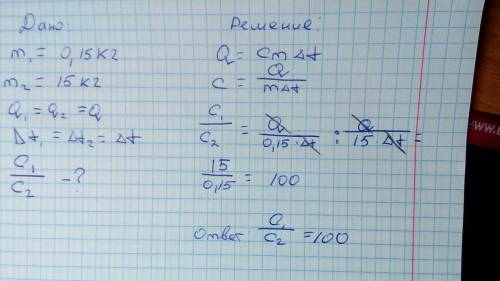 Дано:
m₁ = 0,15 кг
m₂ = 15 кг
Q₁ = Q₂ = Q
Δt₁ = Δt₂ = Δt
C₁/C₂ - ?
Решение:
Q = cmΔt
c = Q/mΔt
C₁/C₂ = Q/0,15·Δt : Q/15·Δt =
15/0,15 = 100
Ответ C₁/C₂ = 100